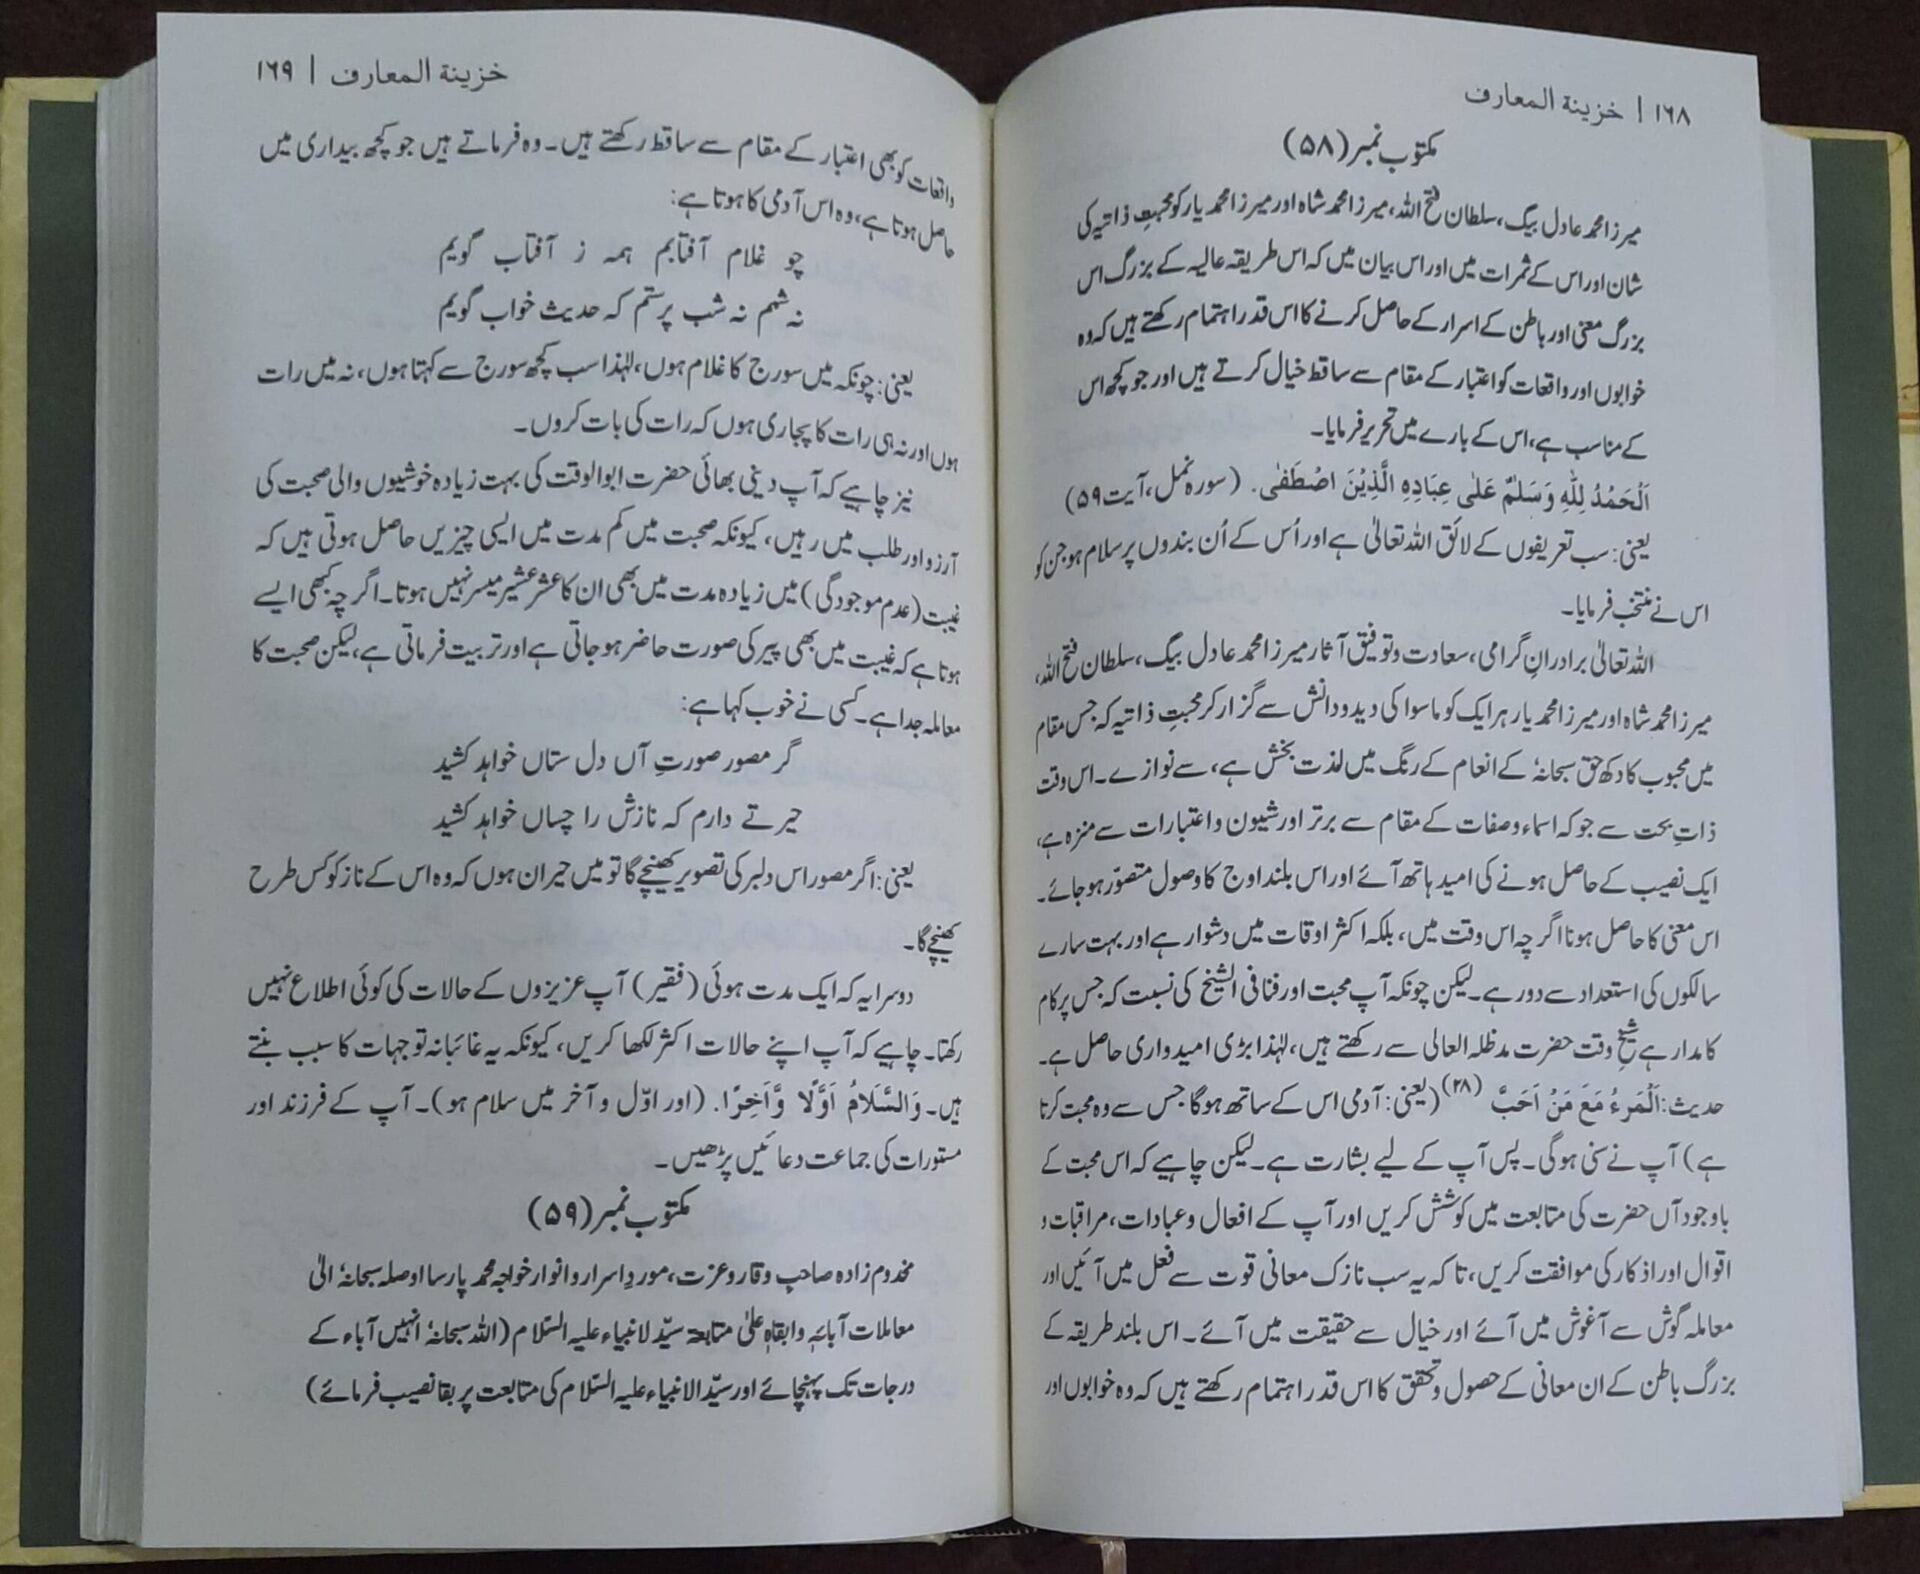 ۱۶۸ | خزینۃ المعارف
مکتوب نمبر (۵۸)
میرزا محمد عادل بیگ، سلطان فتح اللہ، میرزا محمد شاہ اور میرزا محمد یار کو محبتِ ذاتیہ کی
شان اور اس کے ثمرات میں اور اس بیان میں کہ اس طریقہ عالیہ کے بزرگ اس
بزرگ معنی اور باطن کے اسرار کے حاصل کرنے کا اس قدر اہتمام رکھتے ہیں کہ وہ
خوابوں اور واقعات کو اعتبار کے مقام سے ساقط خیال کرتے ہیں اور جو کچھ اس
کے مناسب ہے، اس کے بارے میں تحریر فرمایا۔
اَلْحَمْدُ لِلّٰهِ وَسَلٰمٌ عَلٰی عِبَادِهِ الَّذِیْنَ اصْطَفٰی. (سورہ نمل، آیت ۵۹)
یعنی: سب تعریفوں کے لائق اللہ تعالیٰ ہے اور اُس کے اُن بندوں پر سلام ہو جن کو
اس نے منتخب فرمایا۔
اللہ تعالیٰ برادرانِ گرامی، سعادت و توفیق آثار میرزا محمد عادل بیگ، سلطان فتح اللہ،
میرزا محمد شاہ اور میرزا محمد یار ہر ایک کو ماسوا کی دید و دانش سے گزار کر محبتِ ذاتیہ کہ جس مقام
میں محبوب کا دکھ حق سبحانہٗ کے انعام کے رنگ میں لذت بخش ہے، سے نوازے۔ اس وقت
ذاتِ بحت سے جو کہ اسماء و صفات کے مقام سے برتر اور شیون و اعتبارات سے منزہ ہے،
ایک نصیب کے حاصل ہونے کی امید ہاتھ آئے اور اس بلند اوج کا وصول متصوّر ہو جائے۔
اس معنی کا حاصل ہونا اگرچہ اس وقت میں، بلکہ اکثر اوقات میں دشوار ہے اور بہت سارے
سالکوں کی استعداد سے دور ہے۔ لیکن چونکہ آپ محبت اور فنا فی الشیخ کی نسبت کہ جس پر کام
کا مدار ہے شیخِ وقت حضرت مدظلہ العالی سے رکھتے ہیں، لہٰذا بڑی امیدواری حاصل ہے۔
حدیث: اَلْمَرءُ مَعَ مَنْ اَحَبَّ (۲۸) (یعنی: آدمی اس کے ساتھ ہوگا جس سے وہ محبت کرتا
ہے) آپ نے سنی ہوگی۔ پس آپ کے لیے بشارت ہے۔ لیکن چاہیے کہ اس محبت کے
باوجود آں حضرت کی متابعت میں کوشش کریں اور آپ کے افعال و عبادات، مراقبات و
اقوال اور اذکار کی موافقت کریں، تاکہ یہ سب نازک معانی قوت سے فعل میں آئیں اور
معاملہ گوش سے آغوش میں آئے اور خیال سے حقیقت میں آئے۔ اس بلند طریقہ کے
بزرگ باطن کے ان معانی کے حصول و تحقق کا اس قدر اہتمام رکھتے ہیں کہ وہ خوابوں اور
خزینۃ المعارف | ۱۶۹
واقعات کو بھی اعتبار کے مقام سے ساقط رکھتے ہیں۔ وہ فرماتے ہیں جو کچھ بیداری میں
حاصل ہوتا ہے، وہ اس آدمی کا ہوتا ہے:
چو غلام آفتابم ہمہ ز آفتاب گویم
نہ شبم نہ شب پرستم کہ حدیث خواب گویم
یعنی: چونکہ میں سورج کا غلام ہوں، لہٰذا سب کچھ سورج سے کہتا ہوں، نہ میں رات
ہوں اور نہ ہی رات کا پجاری ہوں کہ رات کی بات کروں۔
نیز چاہیے کہ آپ دینی بھائی حضرت ابوالوقت کی بہت زیادہ خوشیوں والی صحبت کی
آرزو اور طلب میں رہیں، کیونکہ صحبت میں کم مدت میں ایسی چیزیں حاصل ہوتی ہیں کہ
غیبت (عدم موجودگی) میں زیادہ مدت میں بھی ان کا عشر عشیر میسر نہیں ہوتا۔ اگرچہ کبھی ایسے
ہوتا ہے کہ غیبت میں بھی پیر کی صورت حاضر ہو جاتی ہے اور تربیت فرماتی ہے، لیکن صحبت کا
معاملہ جدا ہے۔ کسی نے خوب کہا ہے:
گر مصور صورتِ آں دل ستاں خواہد کشید
حیرتے دارم کہ نازش را چساں خواہد کشید
یعنی: اگر مصور اس دلبر کی تصویر کھینچے گا تو میں حیران ہوں کہ وہ اس کے ناز کو کس طرح
کھینچے گا۔
دوسرا یہ کہ ایک مدت ہوئی (فقیر) آپ عزیزوں کے حالات کی کوئی اطلاع نہیں
رکھتا۔ چاہیے کہ آپ اپنے حالات اکثر لکھا کریں، کیونکہ یہ غائبانہ توجہات کا سبب بنتے
ہیں۔ وَالسَّلَامُ اَوَّلًا وَّاٰخِرًا. (اور اوّل و آخر میں سلام ہو)۔ آپ کے فرزند اور
مستورات کی جماعت دعائیں پڑھیں۔
مکتوب نمبر (۵۹)
مخدوم زادہ صاحبِ وقار و عزت، موردِ اسرار و انوار خواجہ محمد پارسا اوصلہ سبحانہٗ الیٰ
معاملات آبائہٖ وابقاہٗ علیٰ متابعۃ سیّد لانبیاء علیہ السّلام (اللہ سبحانہٗ انہیں آباء کے
درجات تک پہنچائے اور سیّد الانبیاء علیہ السّلام کی متابعت پر بقا نصیب فرمائے)